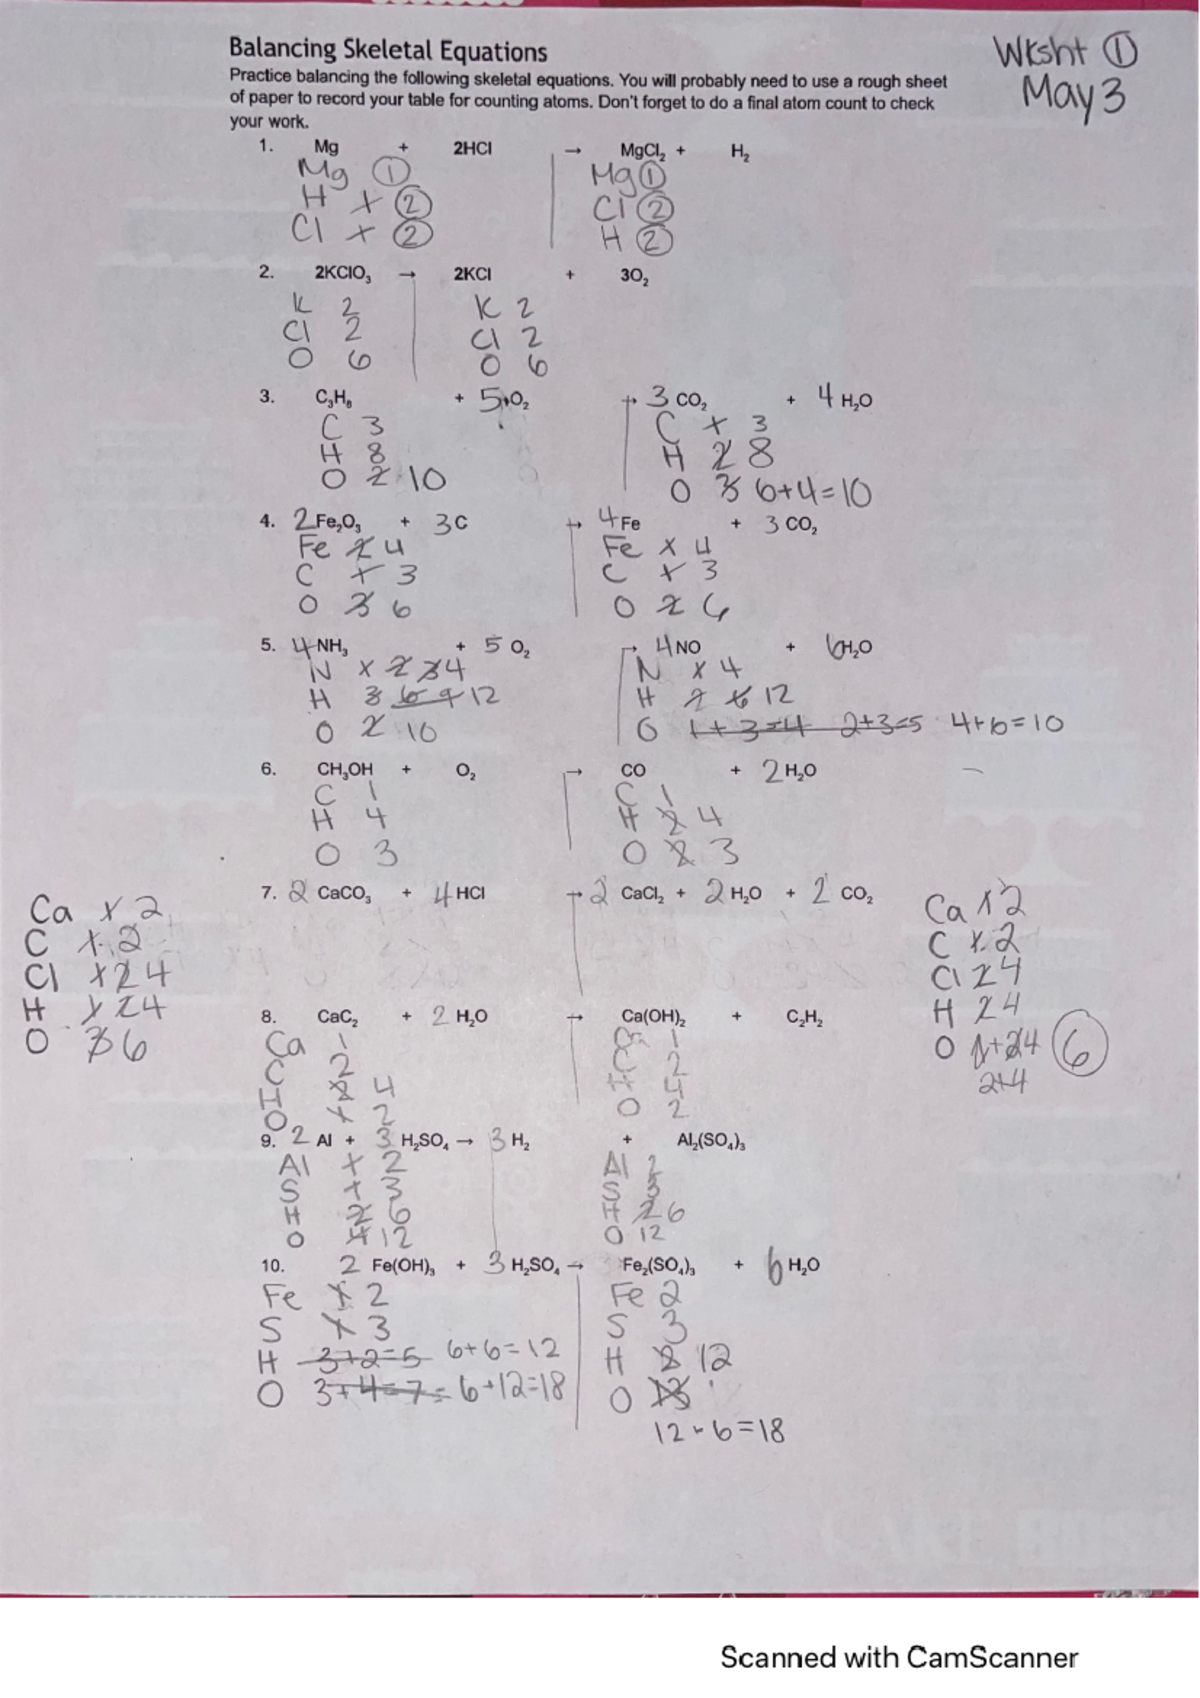 Balancing Skeletal Equations
Wksht ①
May 3
Practice balancing the following skeletal equations. You will probably need to use a rough sheet
of paper to record your table for counting atoms. Don't forget to do a final atom count to check
your work.
1. Mg + 2HCl → MgCl₂ + H₂
Mg ① Mg ①
H 1 ② Cl ②
Cl 1 ② H ②
2. 2KClO₃ → 2KCl + 3O₂
K 2 K 2
Cl 2 Cl 2
O 6 O 6
3. C₃H₈ + 5 O₂ → 3 CO₂ + 4 H₂O
C 3 C 1 3
H 8 H 2 8
O 2 10 O 3 6+4=10
4. 2 Fe₂O₃ + 3 C → 4 Fe + 3 CO₂
Fe 2 4 Fe 1 4
C 1 3 C 1 3
O 3 6 O 2 6
5. 4 NH₃ + 5 O₂ → 4 NO + 6 H₂O
N 1 2 3 4 N 1 4
H 3 6 9 12 H 2 6 12
O 2 10 O 1+3=4 2+3=5 4+6=10
6. CH₃OH + O₂ → CO + 2 H₂O
C 1 C 1
H 4 H 2 4
O 3 O 2 3
7. 2 CaCO₃ + 4 HCl → 2 CaCl₂ + 2 H₂O + 2 CO₂
Ca 1 2 Ca 1 2
C 1 2 C 1 2
Cl 1 2 4 Cl 2 4
H 1 2 4 H 2 4
O 3 6 O 1+2 4 ⑥
2+4
8. CaC₂ + 2 H₂O → Ca(OH)₂ + C₂H₂
Ca 1 Ca 1
C 2 C 2
H 2 4 H 4
O 1 2 O 2
9. 2 Al + 3 H₂SO₄ → 3 H₂ + Al₂(SO₄)₃
Al 1 2 Al 2
S 1 3 S 3
H 2 6 H 2 6
O 4 12 O 12
10. 2 Fe(OH)₃ + 3 H₂SO₄ → Fe₂(SO₄)₃ + 6 H₂O
Fe 1 2 Fe 2
S 1 3 S 3
H 3+2=5 6+6=12 H 2 12
O 3+4=7= 6+12=18 O 13
12+6=18
Scanned with CamScanner